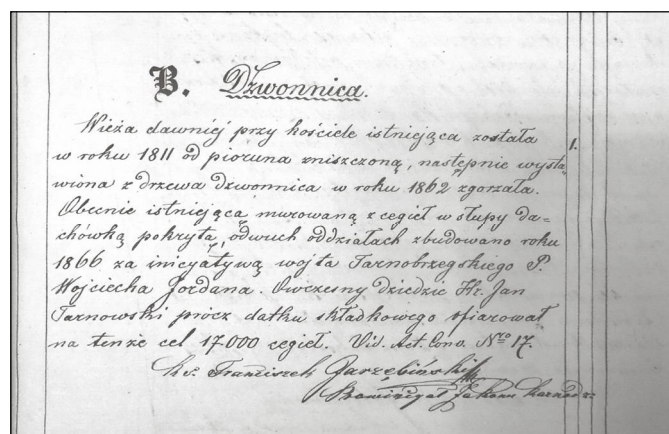 B. Dzwonnica.
Wieża dawniej przy kościele istniejąca została 1.
w roku 1811 od pioruna zniszczoną, następnie wysta-
wiona z drzewa dzwonnica w roku 1862 zgorzała.
Obecnie istniejącą murowaną z cegieł w słupy da=
chówką pokrytą, o dwuch oddziałach zbudowano roku
1866 za inicyatywą wojta Tarnobrzegskiego P.
Wojciecha Jordana. Owczesny dziedzic Hr. Jan
Tarnowski prócz datku składkowego ofiarował
na tenże cel 17000 cegieł. Vid. Act. Conv. Nro 17.
Ks. Franciszek Jarzębiński
Dominikan